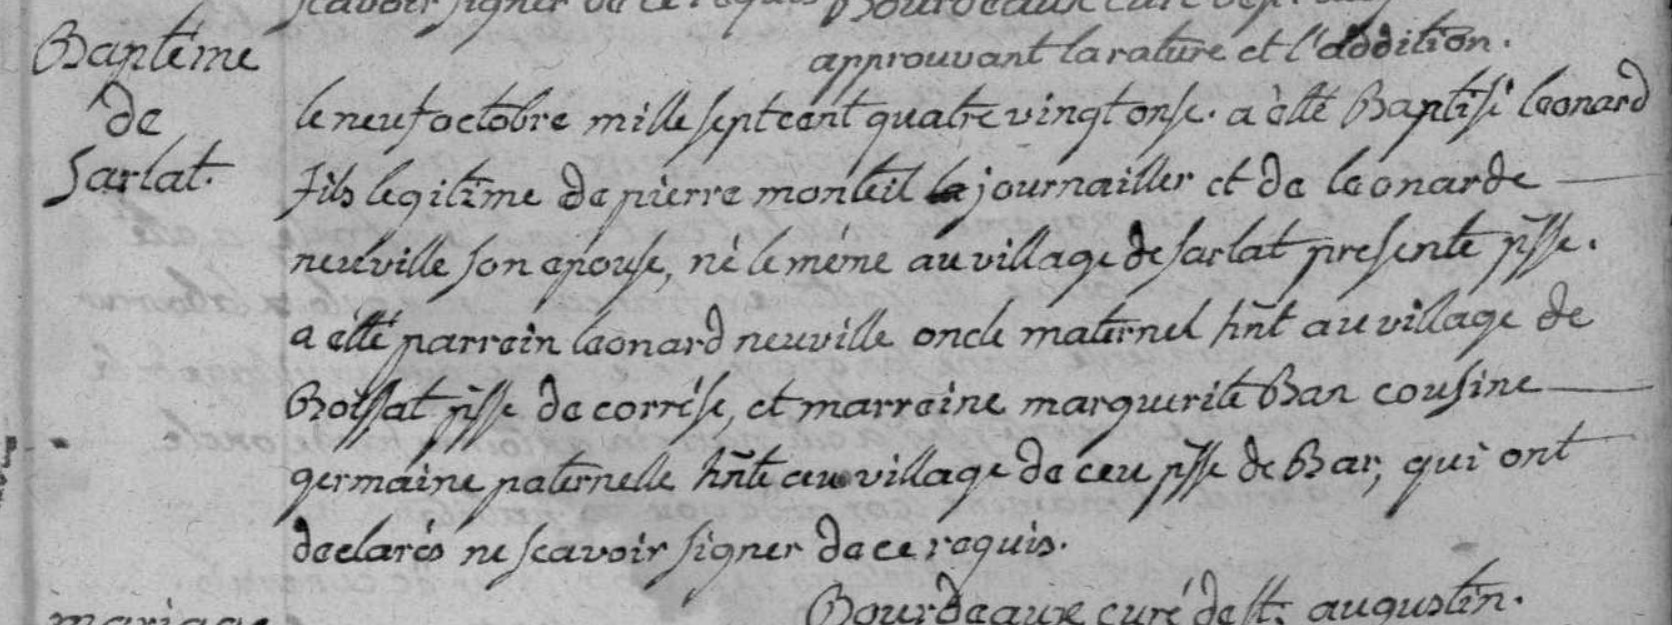 scavoir signer de ce requis Bourdeaux curé
approuvant la rature et l'addition.
Baptême
de
Sarlat.
le neuf octobre mille sept cent quatre vingt onse. a èlté Baptisé leonard
fils legitime de pierre monteil journailler et de leonarde
neuville son epouse, né le méme au village de sarlat presente psse.
a èlté parrein leonard neuville oncle maternel hñt au village de
Boissat psse de corrése, et marreine marguerite Ban cousine
germaine paternelle hñte au village de ceu psse de Bar, qui ont
declarés ne scavoir signer de ce requis.
Bourdeaux curé de st. augustin.
mariage